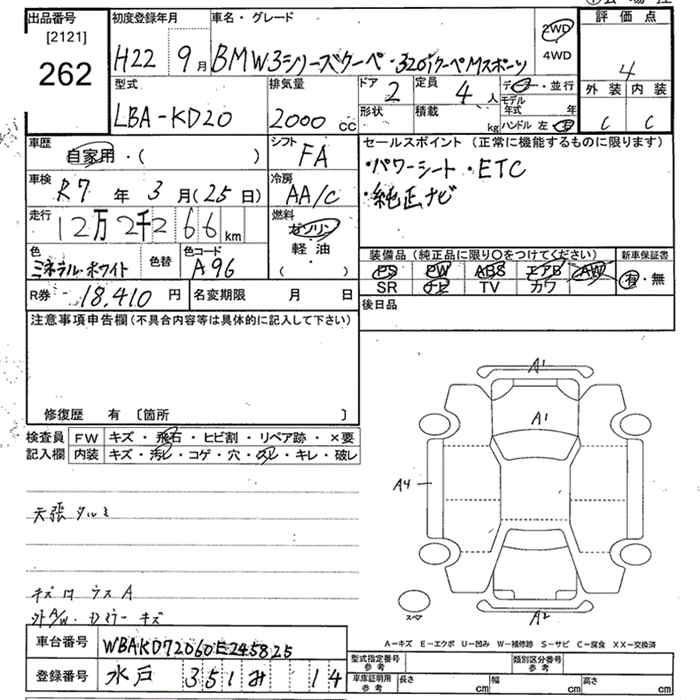 出品番号 初度登録年月 車名・グレード 2WD 評価点
[2121] 262 H22 9月 BMW3シリーズクーペ・320iクーペMスポーツ 4WD 4
型式 排気量 ドア 定員 ディーラー・並行 外装 内装
LBA-KD20 2000cc 2 4人 モデル年式 年 C C
形状 積載 kg ハンドル 左 右
車歴 シフト セールスポイント (正常に機能するものに限ります)
自家用・( ) FA ・パワーシート・ETC
車検 冷房 ・純正ナビ
R7年 3月(25日) AA/C
走行 燃料
12万2千266km ガソリン
軽油
( )
色 色替 色コード 装備品 (純正品に限り〇をつけてください) 新車保証書
ミネラルホワイト A96 PS PW ABS エアB AW 有・無
SR ナビ TV カワ
R券 18,410円 名変期限 月 日 後日品
注意事項申告欄(不具合内容等は具体的に記入して下さい)
修復歴 有 〔箇所 〕
検査員 FW キズ・飛石・ヒビ割・リペア跡・×要
記入欄 内装 キズ・汚レ・コゲ・穴・スレ・キレ・破レ
天張タルミ
外A/W・Dミラーキズ
A1
A1
A4
A2
スペア
A-キズ E-エクボ U-凹み W-補修跡 S-サビ C-腐食 XX-交換済
車台番号 WBAKD72060E245825
登録番号 水戸 351 み 14
型式指定番号 参考 類別区分番号 参考
車庫証明用 参考 長さ cm 幅 cm 高さ cm